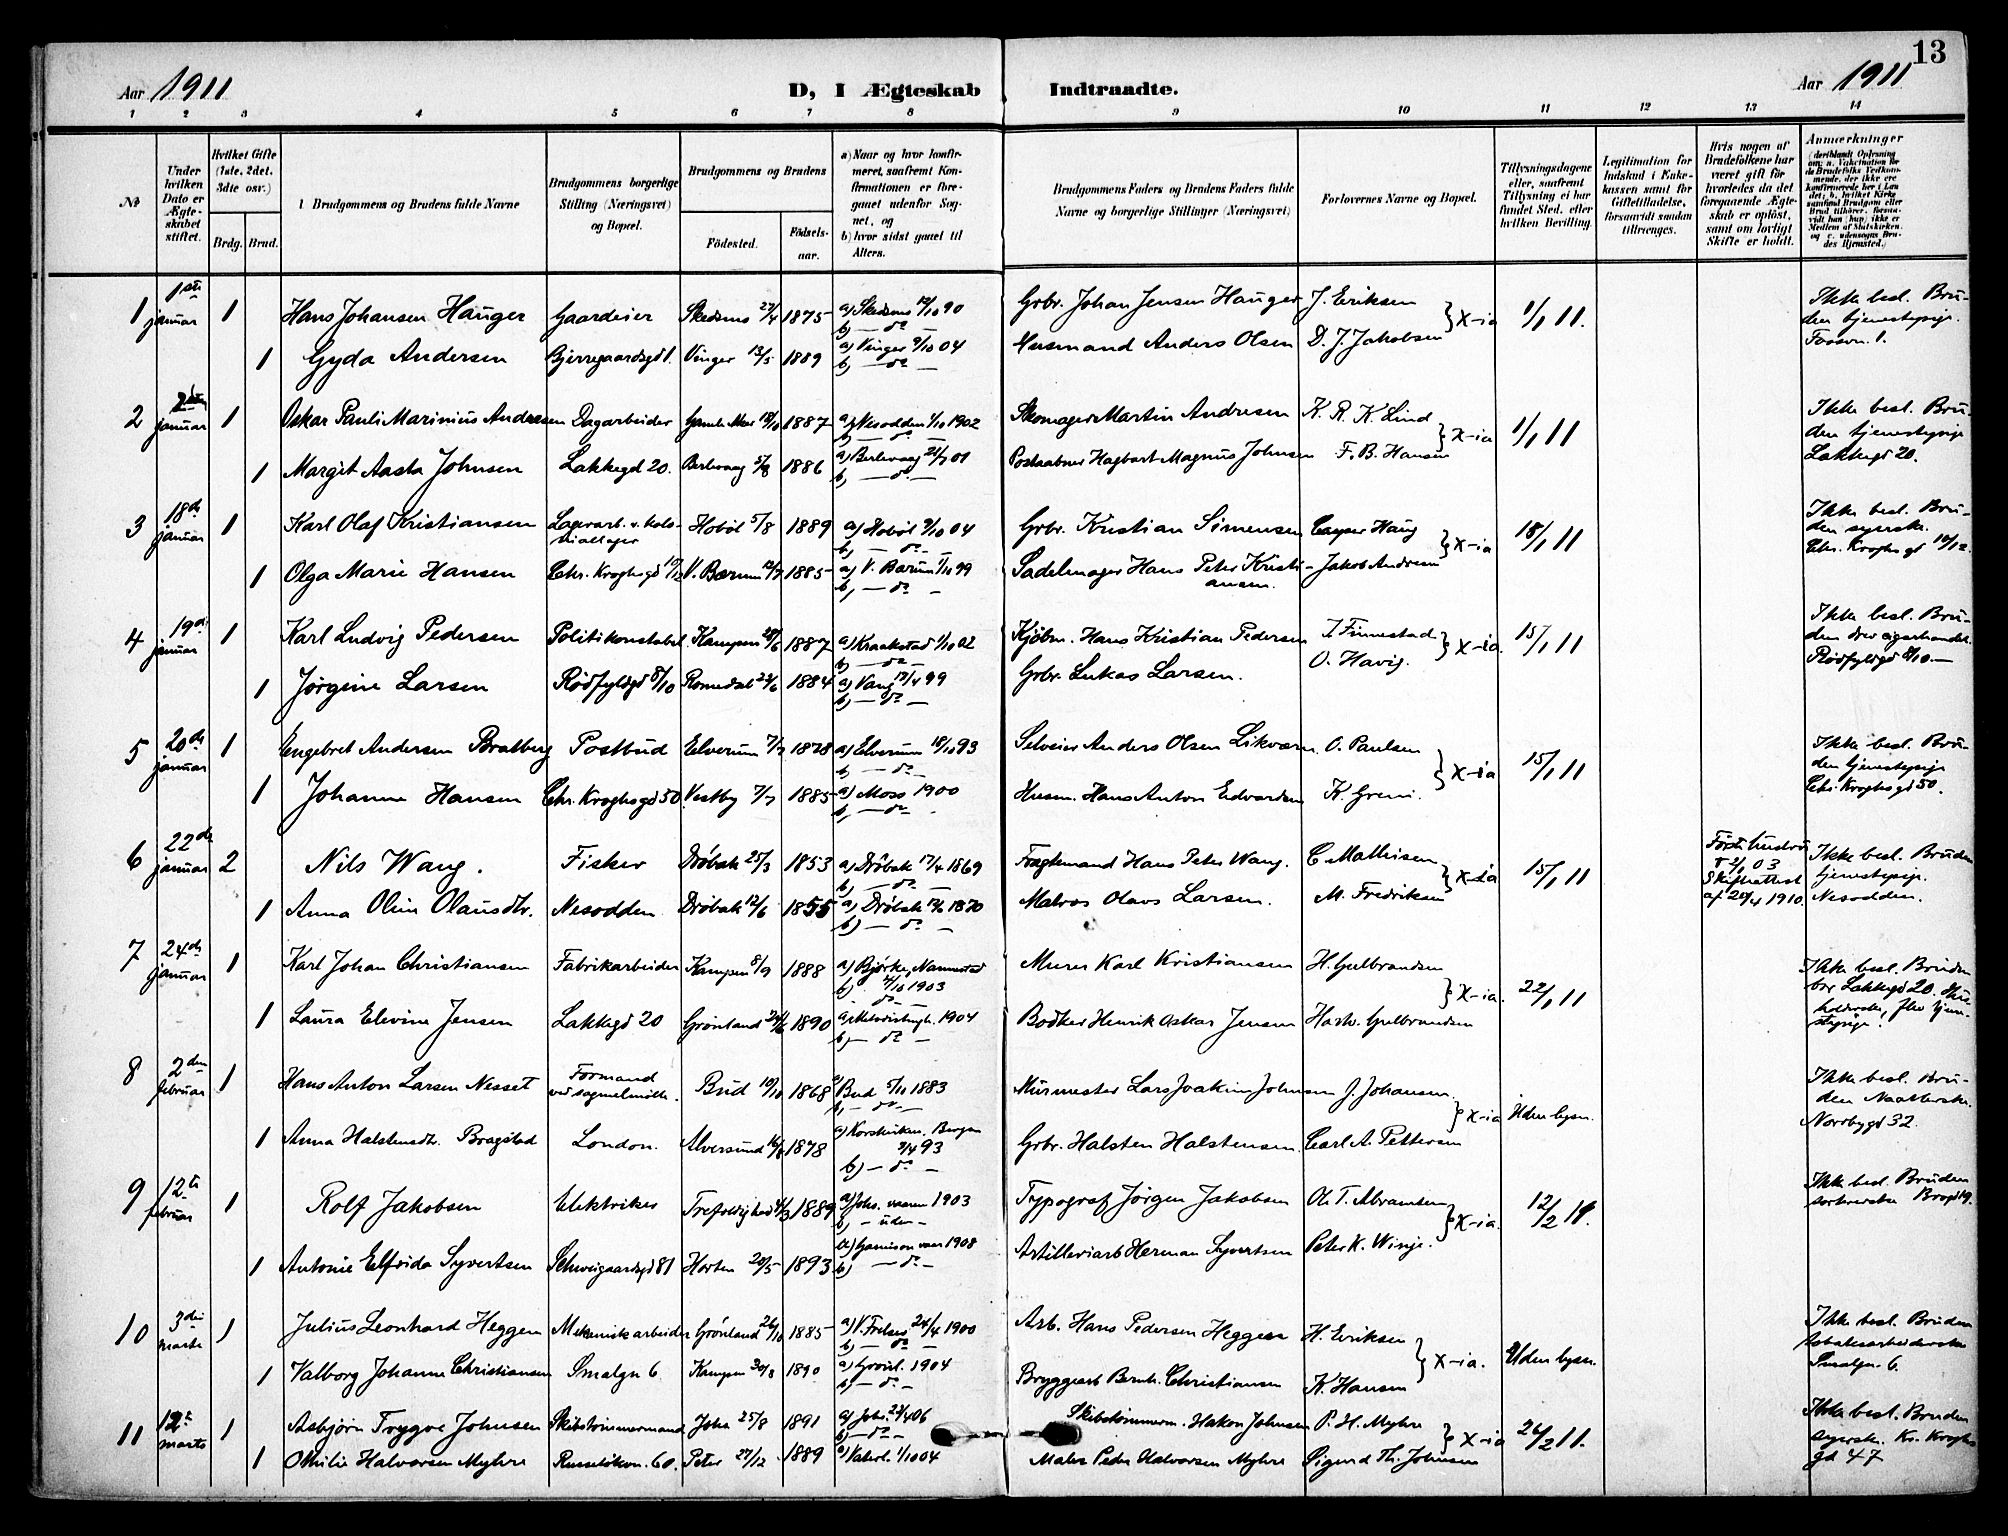 13
Aar 1911
D, I Ægteskab Indtraadte.
Aar 1911
1 2 3 4 5 6 7 8 9 10 11 12 13 14
№
Under hvilken Dato er Ægteskabet stiftet.
Hvilket Gifte (1ste, 2det, 3die osv.)
Brdg. Brud.
Brudgommens og Brudens fulde Navne
Brudgommens borgerlige Stilling (Næringsvei) og Bopæl.
Brudgommens og Brudens
Fødested.
Fødselsaar.
a) Naar og hvor konfirmeret, saafremt Konfirmationen er foregaaet udenfor Sognet, og
b) hvor sidst gaaet til Alters.
Brudgommens Faders og Brudens Faders fulde Navne og borgerlige Stillinger (Næringsvei)
Forlovernes Navne og Bopæl.
Tillysningsdagene eller, saafremt Tillysning ei har fundet Sted, efter hvilken Bevilling.
Legitimation for Indskud i Enkekassen samt for Giftetilladelse, forsaavidt saadan tiltrænges.
Hvis nogen af Brudefolkene har været gift før hvorledes da det foregaaende Ægteskab er opløst, samt om lovligt Skifte er holdt.
Anmærkninger
1 1ste januar 1 Hans Johansen Hauger Gaardeier Skedsmo 27/4 1875 a) Skedsmo 12/10 90 b) — do Grbr. Johan Jensen Hauger J. Eriksen X-ia 1/1 11. Ikke besl. Bruden tjenestepige
1 Gyda Andersen Bjerregaardsgd 1. Vinger 13/5 1889 a) Vinger 9/10 04 b) — do — Husmand Anders Olsen D. J. Jakobsen
2 januar 1 Oskar Pauli Marinius Andresen Dagarbeider Gamle Aker 18/10 1887 a) Nesodden 1/10 1902 b) — do — Skomager Martin Andresen K. R. K. Lind X-ia 1/1 11 Ikke besl. Bruden tjenestepige Lakkegd 20.
1 Margit Aasta Johnsen Lakkegd 20. Berlevaag 5/8 1886 a) Berlevaag 21/7 01 b) — do — Postaabner Hagbart Magnus Johnsen F. B. Hansen
3 18de januar 1 Karl Olaf Kristiansen Lagerarb. v. Hobøl 5/8 1889 a) Hobøl 9/10 04 b) — do — Grbr. Kristian Simensen Casper Haug X-ia 18/1 11 Ikke besl. Bruden syerske. Chr. Kroghs gd
1 Olga Marie Hansen Chr. Kroghsgd V. Bærum 1885 a) V. Bærum 1/10 99 b) — do — Sadelmager Hans Peter Kristiansen. Jakob Andresen
4 19de januar 1 Karl Ludvig Pedersen Politikonstabel Kampen 28/6 1887 a) Kraakstad 1/10 02 b) — do — Kjøbm. Hans Kristian Pedersen I. Finnestad X-ia. 15/1 11 Ikke besl. Bruden drev cigarhandel. Rødfyldgd 8/10 —
1 Jørgine Larsen Rødfyldgd 8/10 Romedal 22/6 1884 a) Vang 17/4 99 b) — do — Grbr. Lukas Larsen. O. Havig.
5 20de januar 1 Engebret Andersen Bratberg Postbud Elverum 7/7 1878 a) Elverum 18/10 93 b) — do — Selveier Anders Olsen O. Paulsen X-ia 15/1 11 Ikke besl. Bruden tjenestepige Chr. Kroghs gd 50.
1 Johanne Hansen Chr. Kroghsgd 50. Vestby 7/7 1885 a) Moss 1900 b) — do Husm. Hans Anton Edvardsen K. Greni.
6 22de januar 2 Nils Wang. Fisker Drøbak 25/3 1853 a) Drøbak 17/4 1869 b) — do — Fragtemand Hans Peter Wang. C. Mathisen X-ia 15/1 11 Første hustru † 2/1 03 Skifteattest af 20/4 1910. Ikke besl. Bruden tjenestepige. Nesodden.
1 Anna Oline Olausdtr. Nesodden. Drøbak 12/6 1855 a) Drøbak 1870 b) — do — Matros Olavs Larsen. M. Fredriksen
7 24de januar 1 Karl Johan Christiansen Fabrikarbeider Kampen 8/9 1888 a) Bjørke, Nannestad 4/10 1903 b) do — Murer Karl Kristiansen H. Gulbrandsen X-ia. 22/1 11 Ikke besl. Bruden bor Lakkegd 20.
1 Laura Elevine Jensen Lakkegd 20 Grønland 1890 a) Metodistmgh. 1904 b) — do — Bødker Henrik Oskar Jensen Harw. Gulbrandsen
8 2den februar 1 Hans Anton Larsen Nesset Formand ved sagmølle. Bud 19/10 1868 a) Bud 5/11 1883 b) — do — Murmester Lars Joakim Johnsen J. Johansen. X-ia Uden lysn. Ikke besl. Bruden Norbygd 32.
1 Anna Halstensdtr. Bragstad London. Alversund 1878 a) Korskirken, Bergen 9/4 93 b) — do — Grbr. Halsten Halstensen. Carl A. Pettersen
9 12te februar 1 Rolf Jakobsen Elektriker Trefoldighed 4/3 1889 a) Johs. vaaren 1903 b) — uden — Typograf Jørgen Jakobsen Ole T. Abramsen X-ia. 12/2 11. Ikke besl. Bruden
1 Antonie Elfrida Syvertsen Schweigaardsgd 81 Horten 20/5 1893 a) Garnison vaar 1908 b) — do — Artilleriarb Herman Syvertsen Peter K. Winje.
10 3die marts 1 Julius Leonhard Heggen Mekanisk arbeider Grønland 26/10 1885 a) V. Frelses 24/4 1900 b) — do — Arb. Hans Pedersen Heggen H. Eriksen X-ia. Uden lysn. Ikke besl. Bruden tobaksarbeiderske Smalgn. 6.
1 Valborg Johanne Christiansen Smalgn 6 Kampen 30/8 1890 a) Grønl. 1904 b) — do — Bryggearb Bernh. Christiansen K. Hansen
11 12te marts 1 Asbjørn Trygve Johnsen Skibstømmermand Joha 25/8 1891 a) Johs. 22/4 06 b) — do — Skibstømmerm. Hakon Johnsen P. H. Myhre X-ia 26/2 11. Ikke besl. Bruden syersk. Kr. Kroghs gd 47
1 Othilie Halvorsen Myhre Russeløkvn. 60. Peter 27/12 1889 a) Vaterl. 1/10 04 Maler Peder Halvorsen Myhre Sigurd Th. Johnsen